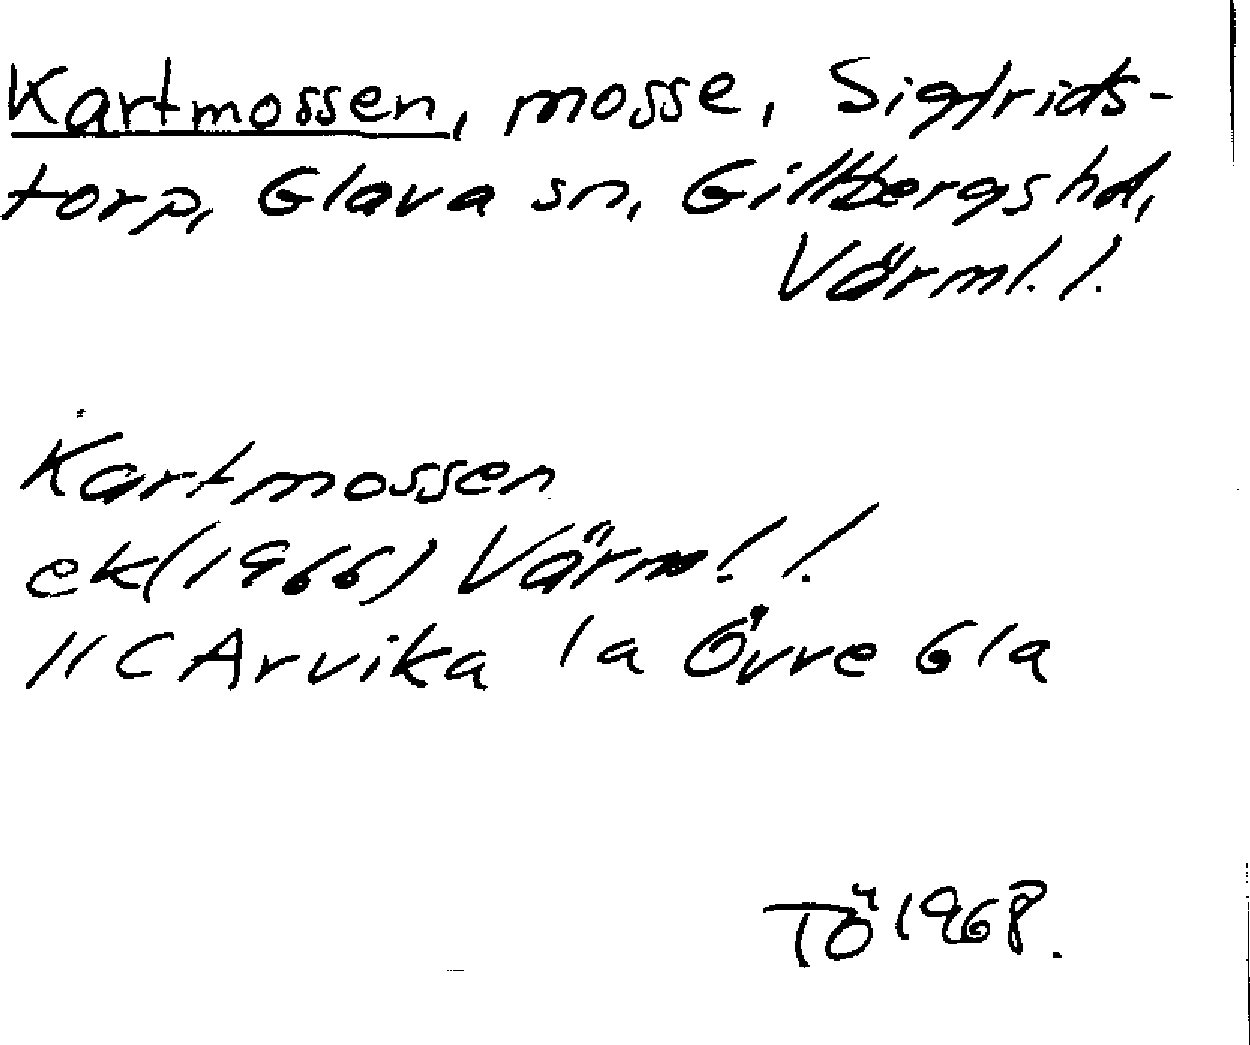 Kartmossen, mosse, Sigfrids-
torp, Glava sn, Gillbergs hd,
Värml. l.
Kartmossen
ek (1966) Värml. l.
11C Arvika 1a Övre Gla
TÖ 1968.